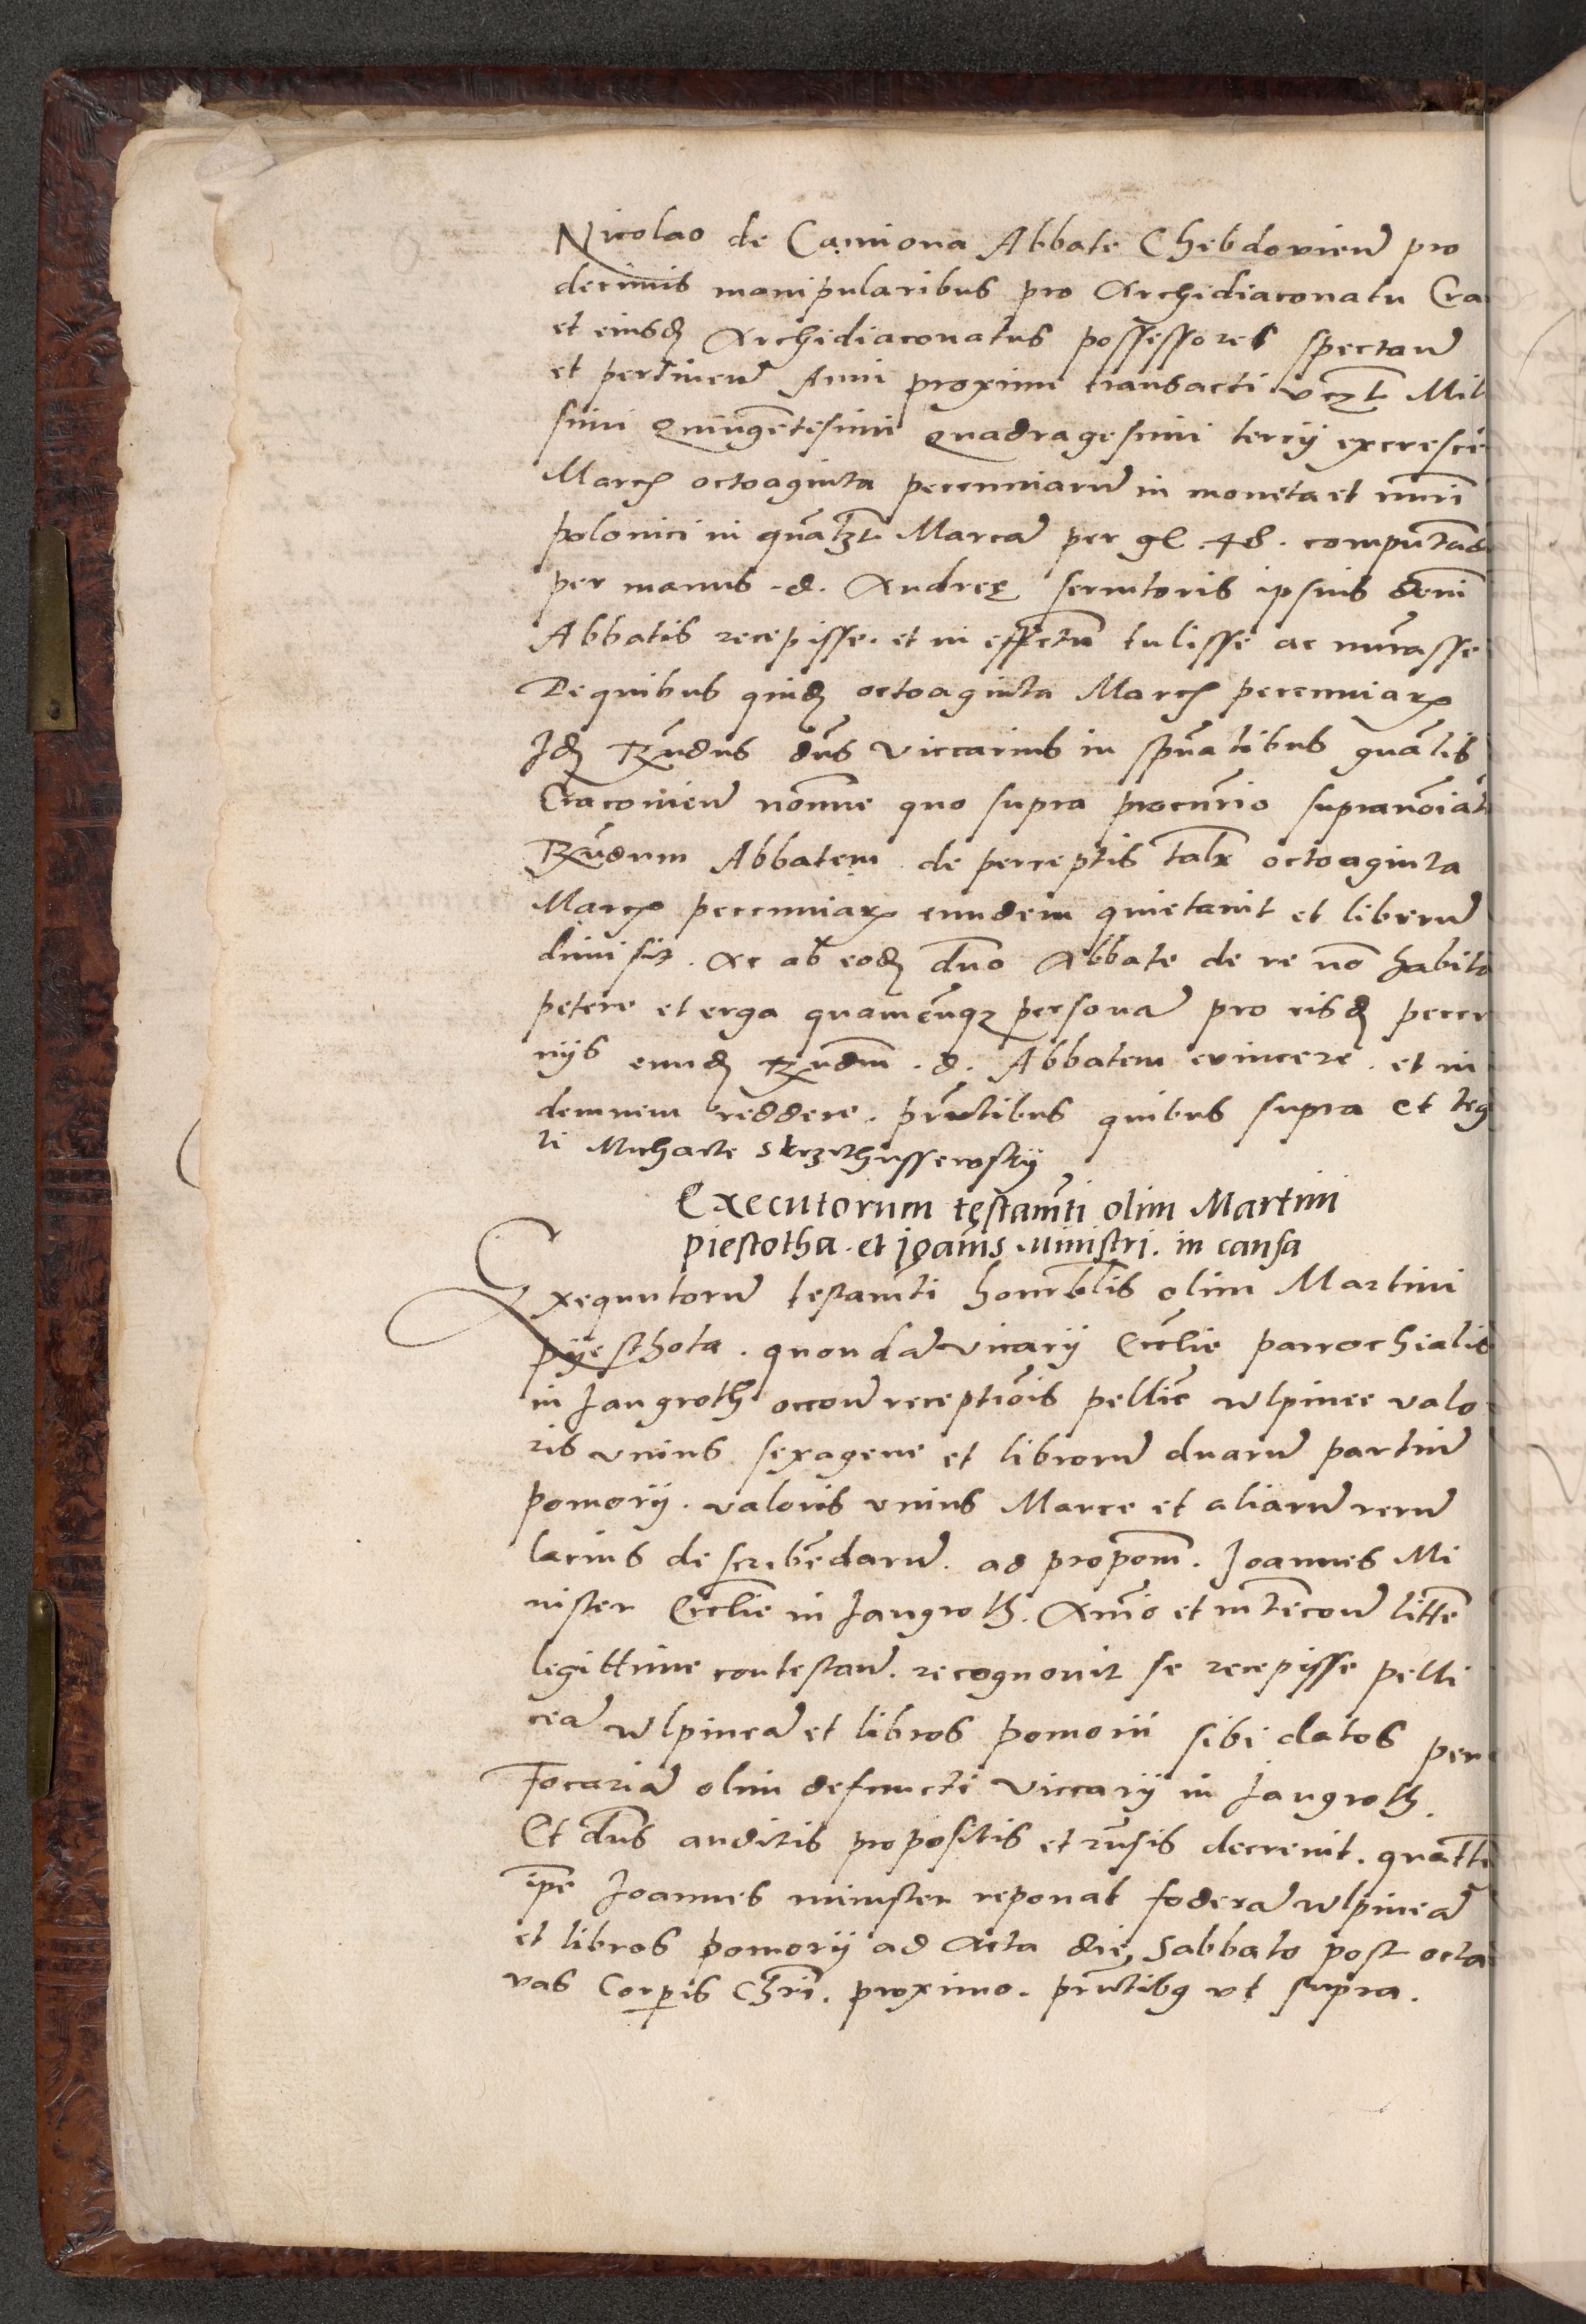 Nicolao de Camiona Abbate Chebdovien̄ pro
decimis manipularibus pro Archidiaconatu Cra
et eiusdʒ Archidiaconatus possessores spectan̄
et pertinen̄ Anni proximi transacti vczt Mil
simi Quingētesimi Quadragesimi tercij excrescē
Marcʒ octoaginta pecuniarū in moneta et nūri
polonici in quālzt Marcā per gl. 48. computādo
per manus .d. Andreę servitoris ipsius dom̄i
Abbatis recepisse. et in effectū tulisse ac nūrasse
De quibus quidʒ octoaginta Marcʒ pecuniarʒ
Idʒ Rv̄dus dn̄s Viccarius in spūalibus gnālis
Cracovien̄ nomīne quo supra procurrio supranōiat
Rv̄dum Abbatem de perceptis talr octoaginta
Marcʒ pecuniarʒ eundem quietavit et liberū
dimisit. Ac ab eodʒ dn̄o Abbate de re nō habita
petere et erga quamcūqʒ personā pro eisdʒ pecu
nijs eundʒ Rv̄dm̄ .d. Abbatem evincere. et in
demnem reddere. pn̄tibus quibus supra et teg
ti Michaele Strzethussewsky
Executorum testam̄ti olim Martini
piestotha. et joānis Ministri. in causa
Exequutorū testam̄ti honorblis olim Martini
pyesthota. quondā Vicarij Ecclīe parrochialis
in Jangroth occōn̄ receptiōis pellicē wlpinee valo
ris vnius sexagene et librorū duarū partiū
pomorij. valoris vnius Marce et aliarū rerū
lacius describēdarū. ad propōm̄. Joannes Mi
nister Ecclīe in Jangroth. Anīo et intēcōn̄ littē
legittime contestan̄. recognovit se recepisse pelli
ceā wlpineā et libros pomorii sibi datos per
Focariā olim defuncti Viccarij in Jangroth.
Et dn̄s auditis propositis et rn̄sis decrevit. quatt
ip̄e Joannes minister reponat foderā wlpineā
et libros pomorij ad Acta die Sabbato post octa
vas Corp̄is Chri. proximo. pn̄tibʒ vt supra.